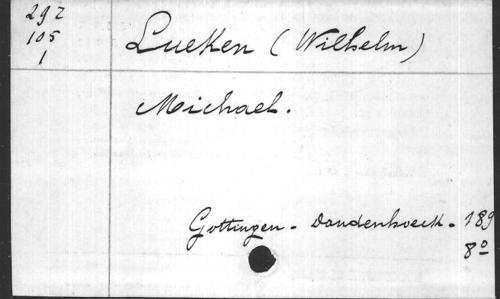 292
105
1
Lueken (Wilhelm)
Michael.
Gottingen - Vandenhoeck - 189
8º